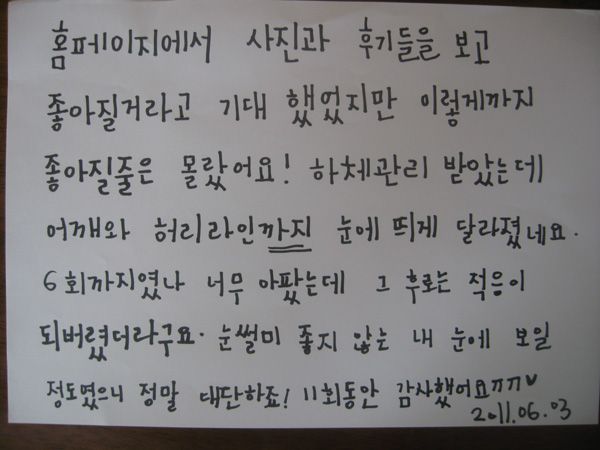 홈페이지에서 사진과 후기들을 보고
좋아질거라고 기대 했었지만 이렇게까지
좋아질줄은 몰랐어요! 하체관리 받았는데
어깨와 허리라인까지 눈에 띄게 달라졌네요.
6회까지였나 너무 아팠는데 그 후로는 적응이
되버렸더라구요. 눈썰미 좋지 않는 내 눈에 보일
정도였으니 정말 대단하죠! 11회동안 감사했어요ㄲㄲ♥
2011.06.03